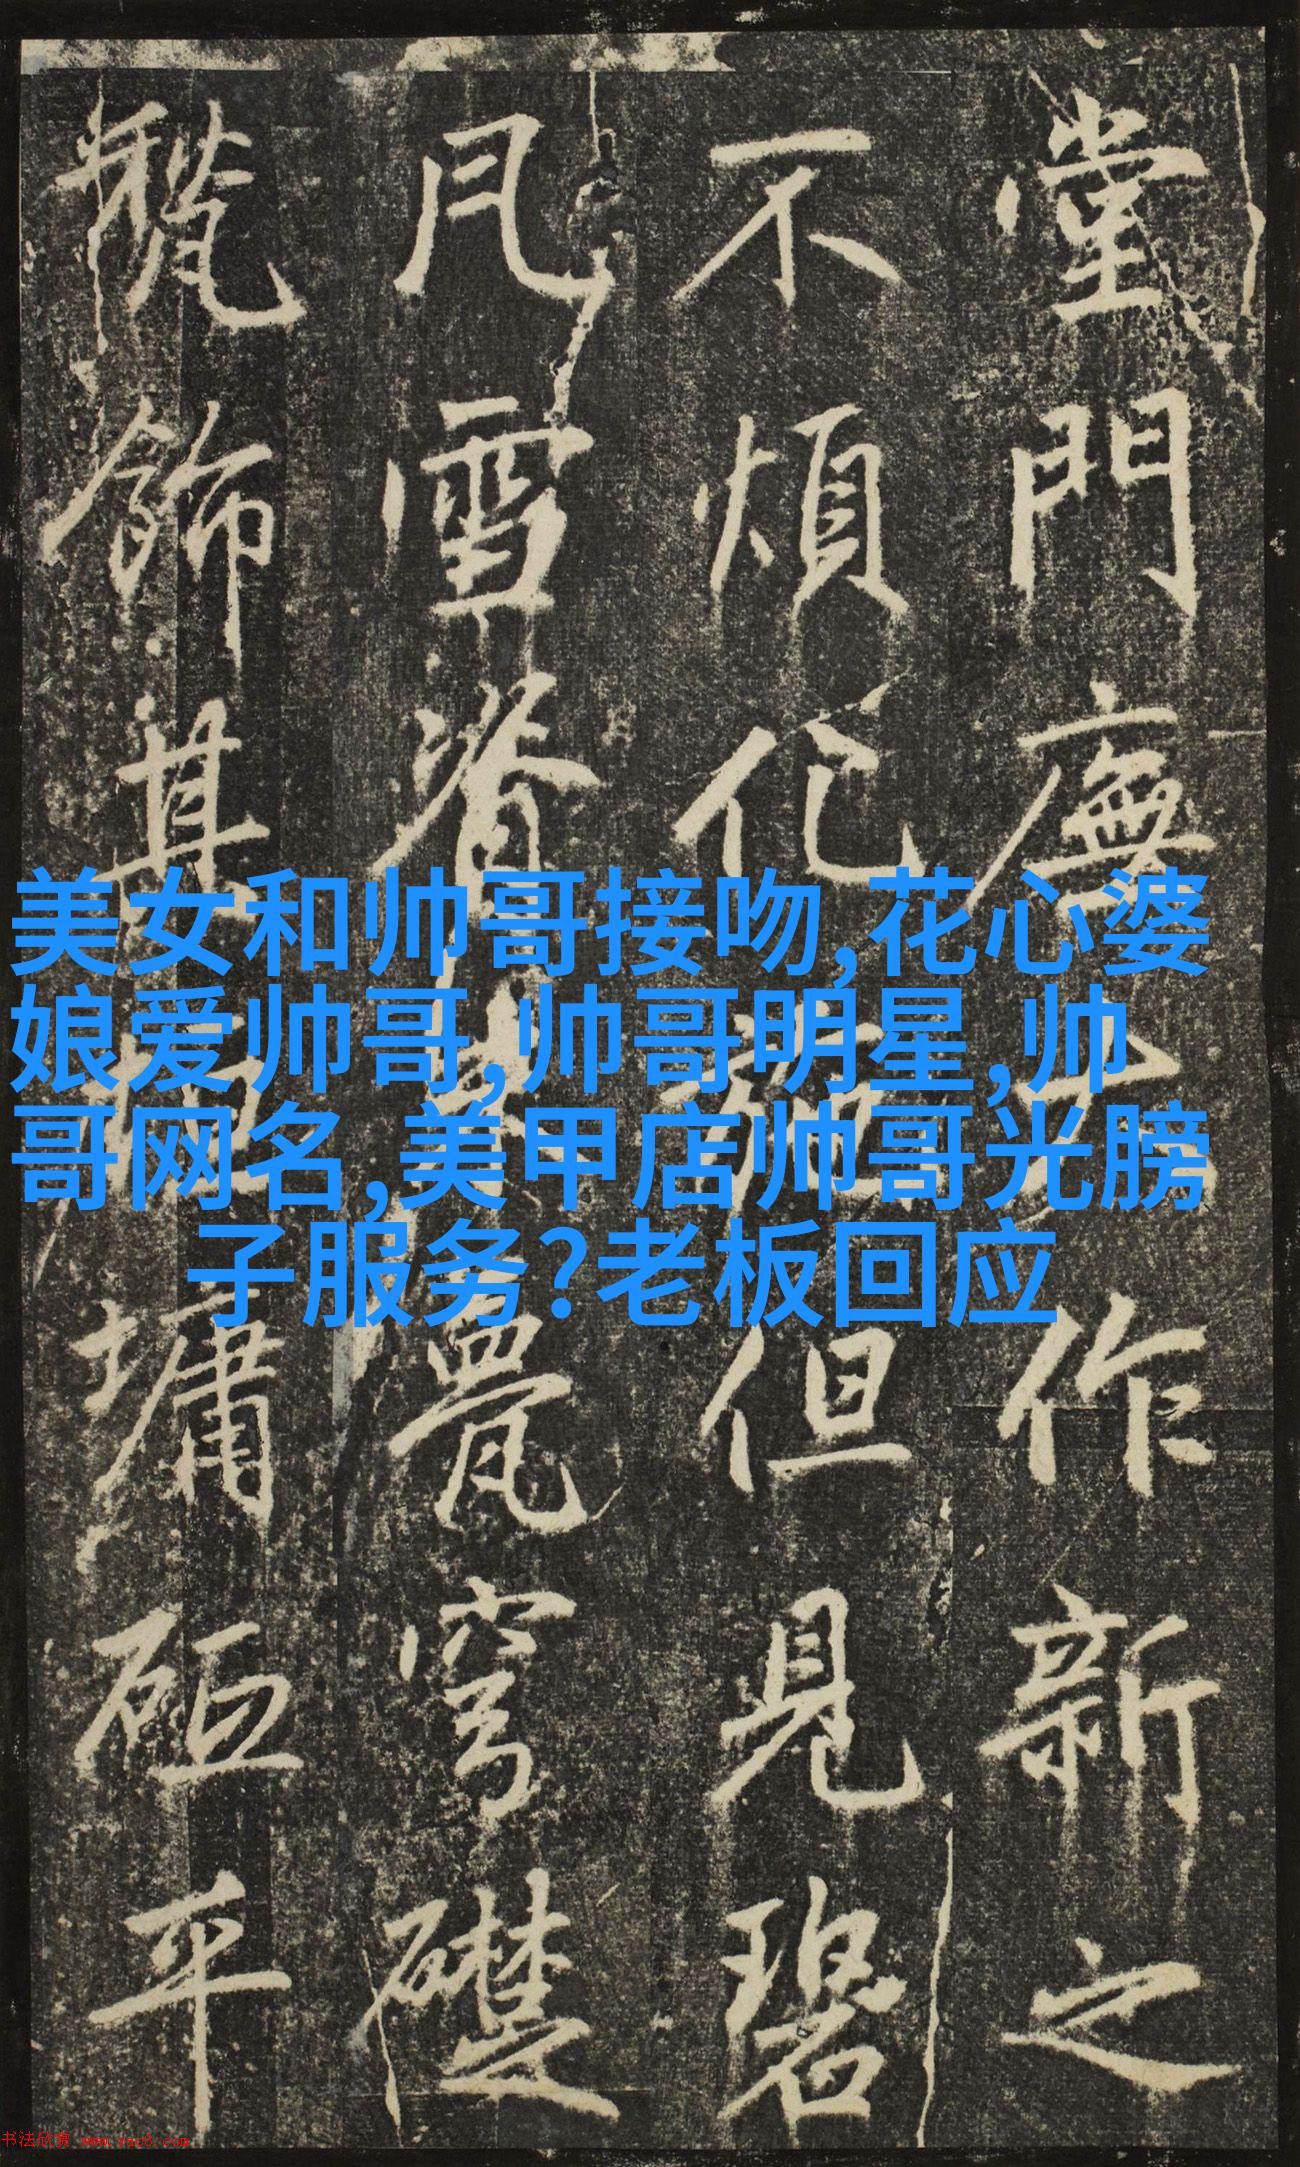 堂門廡
作新之
不煩化
但見碧
風雪脊
甍穹礎
飾其
墉砥平
美女和帅哥接吻,花心婆
娘爱帅哥,帅哥明星,帅
哥网名,美甲店帅哥光膀
子服务?老板回应
书法欣赏 www.yac8.com